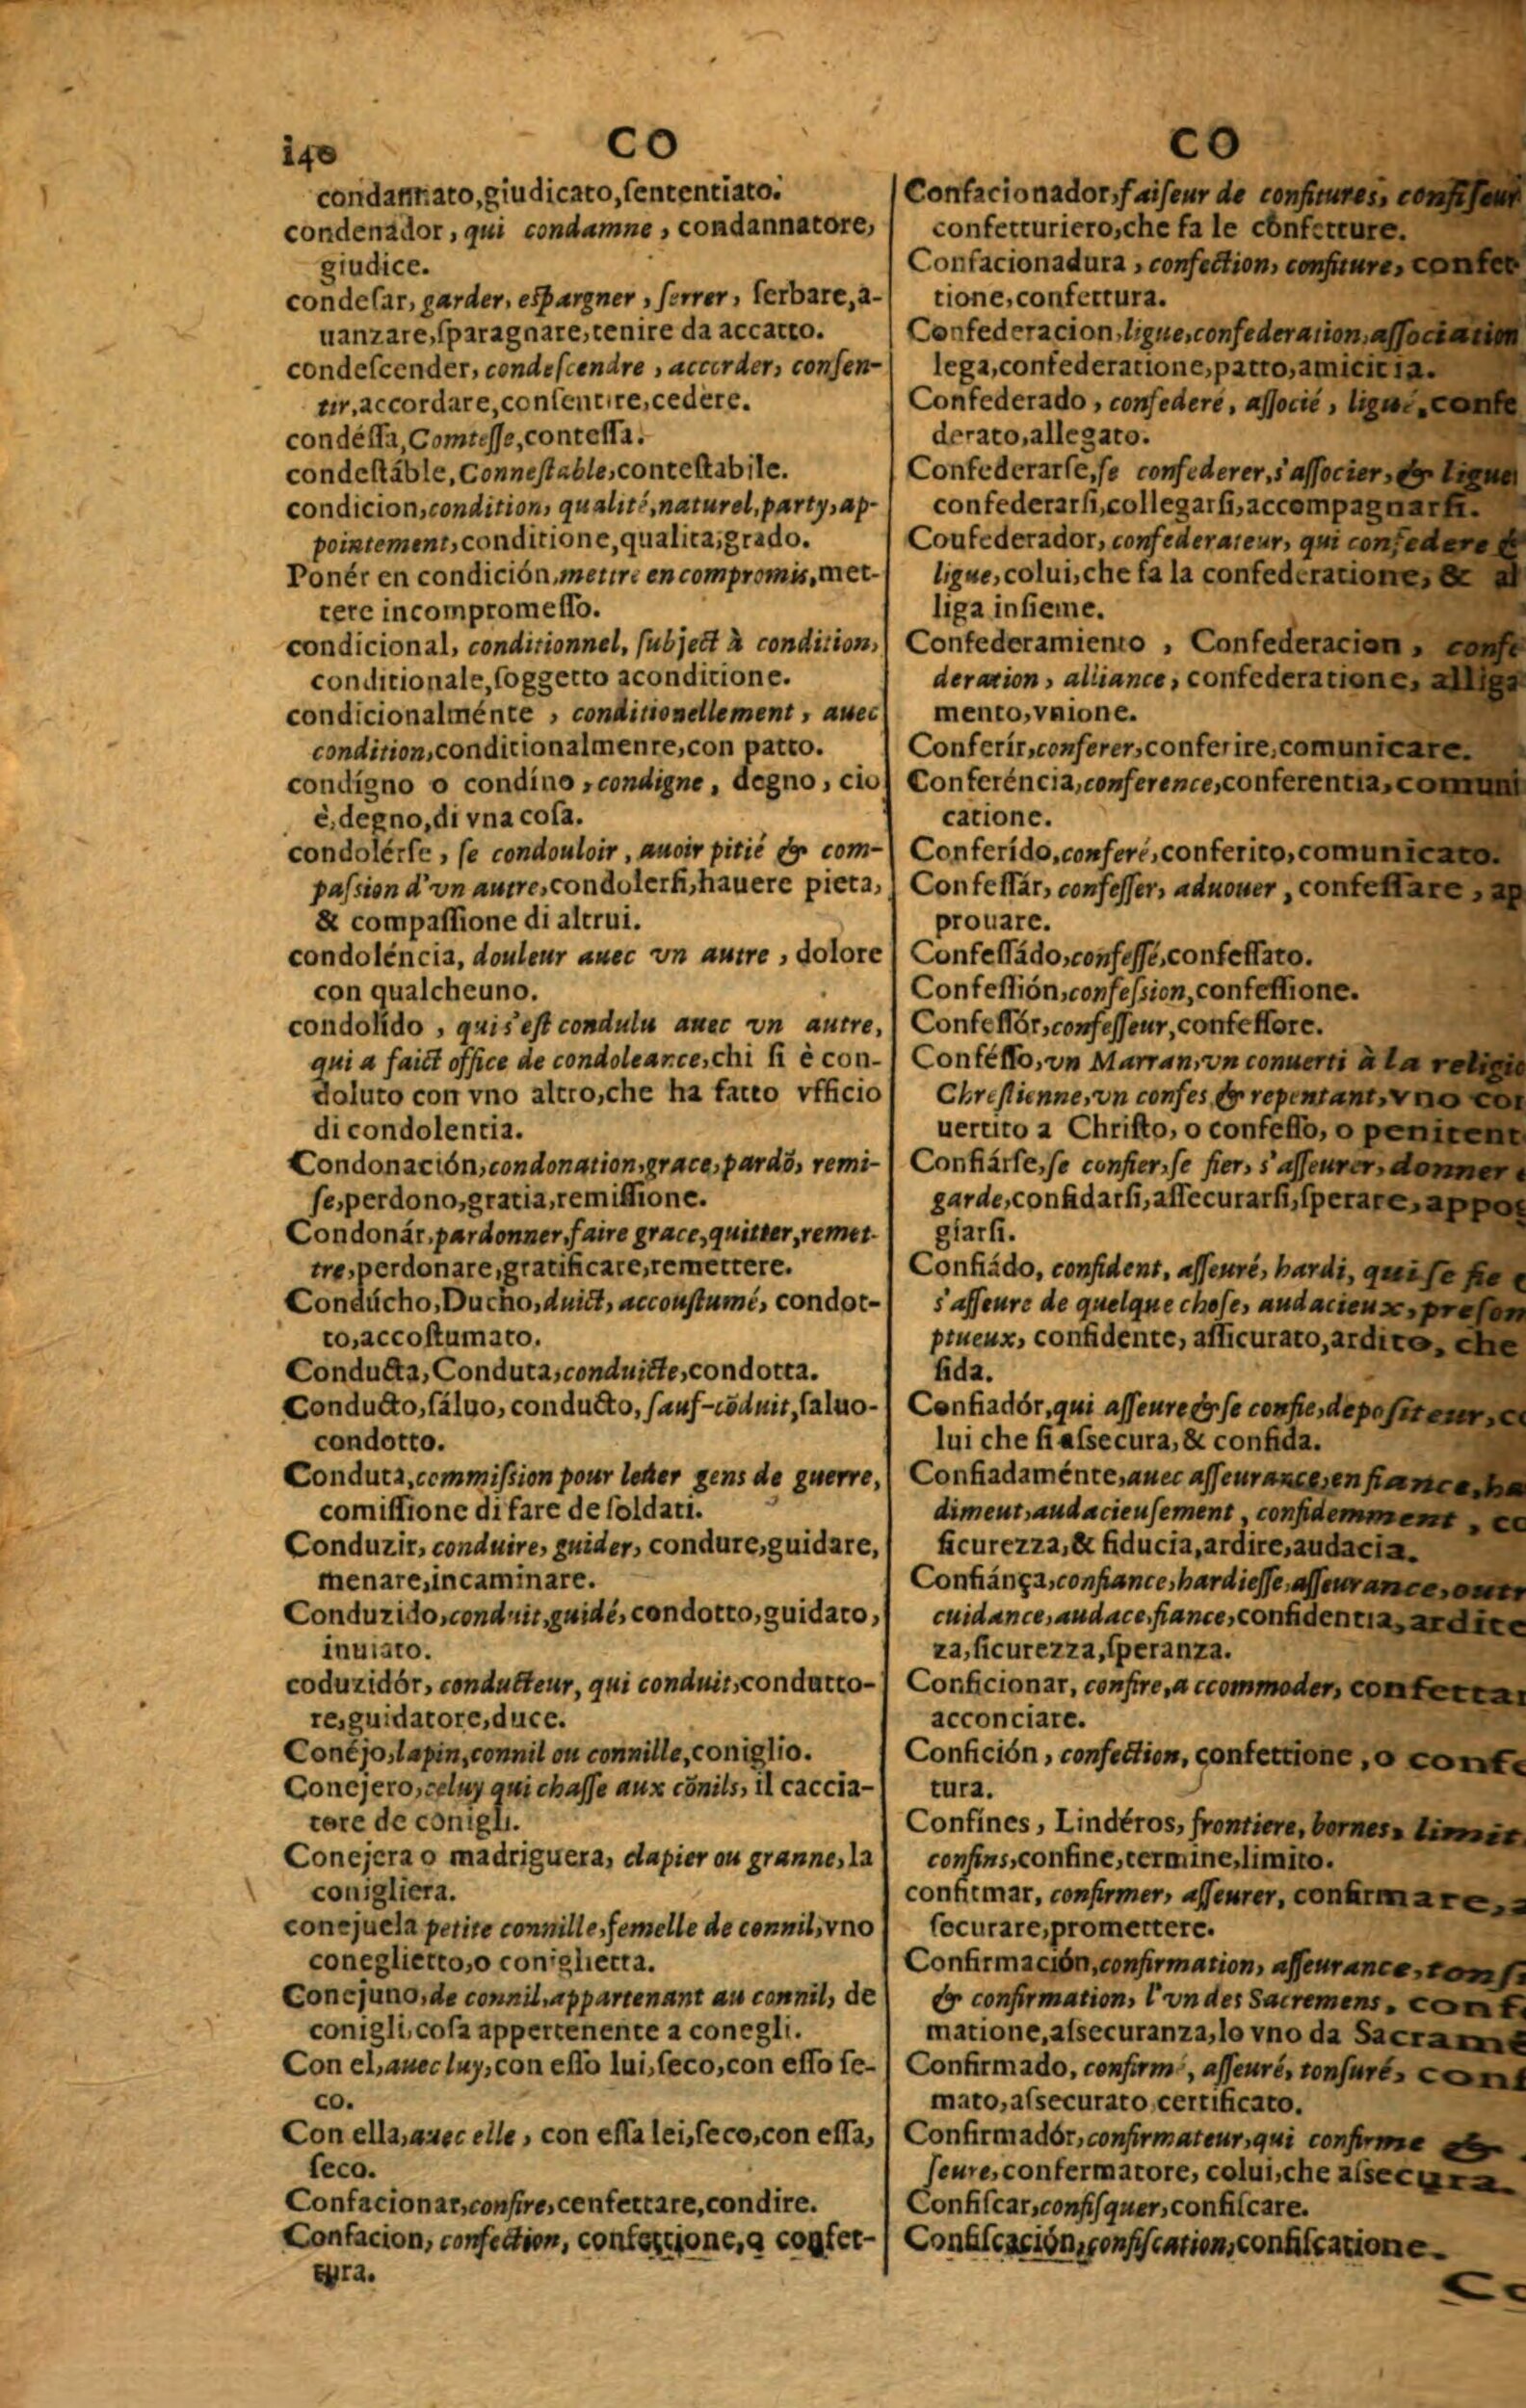 140
CO
condannato,giudicato,ſententiato.
condenádor, qui condamne, condannatore,
giudice.
condeſar, garder, eſpargner, ſerrer, ſerbare, a-
uanzare,ſparagnare,tenire da accatto.
condeſcender, condeſcendre, accorder, conſen-
tir,accordare,conſentire,cedere.
condéſſa,Comteſſe,conteſſa.
condeſtáble,Conneſtable,conteſtabile.
condicion,condition, qualité,naturel,party,ap-
pointement,conditione,qualita,grado.
Ponér en condición,mettre en compromis,met-
tere incompromeſſo.
condicional, conditionnel, ſubject à condition,
conditionale,ſoggetto aconditione.
condicionalménte, conditionellement, auec
condition,conditionalmenre,con patto.
condígno o condíno, condigne, degno, cio
è,degno,di vna coſa.
condolérſe, ſe condouloir, auoir pitié & com-
paſsion d'vn autre,condolerſi,hauere pieta,
& compaſſione di altrui.
condoléncia, douleur auec vn autre, dolore
con qualcheuno.
condolído, qui s'eſt condulu auec vn autre,
qui a faict office de condoleance,chi ſi è con-
doluto con vno altro,che ha fatto vfficio
di condolentia.
Condonación,condonation,grace,pardõ, remi-
ſe,perdono,gratia,remiſſione.
Condonár,pardonner,faire grace,quitter,remet-
tre,perdonare,gratificare,remettere.
Condúcho,Ducho,duict, accouſtumé, condot-
to,accoſtumato.
Conducta,Conduta,conduicte,condotta.
Conducto,ſáluo, conducto, ſauf-cõduit,ſaluo-
condotto.
Conduta,commiſsion pour leuer gens de guerre,
comiſſione di fare de ſoldati.
Conduzir, conduire, guider, condure,guidare,
menare,incaminare.
Conduzido,conduit,guidé, condotto,guidato,
inuiato.
coduzidór, conducteur, qui conduit,condutto-
re,guidatore,duce.
Conéjo,lapin,connil ou connille,coniglio.
Conejero,celuy qui chaſſe aux cõnils, il caccia-
tore de conigli.
Conejera o madriguera, clapier ou granne,la
conigliera.
conejuela petite connille,femelle de connil,vno
coneglietto,o coniglietta.
Conejuno,de connil,appartenant au connil, de
conigli,coſa appertenente a conegli.
Con el,auec luy,con eſſo lui,ſeco,con eſſo ſe-
co.
Con ella,auec elle, con eſſa lei,ſeco,con eſſa,
ſeco.
Confacionar,confire,cenfettare,condire.
Confacion, confection, confettione,o confet-
tura.
CO
Confacionador,faiſeur de confitures, confiſeur
confetturiero,che fa le confetture.
Confacionadura, confection, confiture, confet-
tione,confettura.
Confederacion,ligue,confederation,aſſociation
lega,confederatione,patto,amicitia.
Confederado, confederé, aſſocié, ligué,confe
derato,allegato.
Confederarſe,ſe confederer,s'aſſocier,& ligue
confederarſi,collegarſi,accompagnarſi.
Coufederador, confederateur, qui confedere &
ligue,colui,che fa la confederatione, & al
liga inſieme.
Confederamiento, Confederacion, confe
deration, alliance, confederatione, alliga
mento,vnione.
Conferír,conferer,conferire,comunicare.
Conferéncia,conference,conferentia,comuni
catione.
Conferído,conferé,conferito,comunicato.
Confeſſár, confeſſer, aduouer, confeſſare, ap
prouare.
Confeſſádo,confeſſé,confeſſato.
Confeſſión,confeſsion,confeſſione.
Confeſſór,confeſſeur,confeſſore.
Conféſſo,vn Marran,vn conuerti à la religio
Chreſtienne,vn confes & repentant,vno con
uertito a Chriſto, o confeſſo, o penitent
Confiárſe,ſe confier,ſe fier, s'aſſeurer, donner
garde,confidarſi,aſſecurarſi,ſperare, appog
giarſi.
Confiádo, confident, aſſeuré, hardi, qui ſe fie
s'aſſeure de quelque choſe, audacieux, preſom
ptueux, confidente, aſſicurato,ardito, che
fida.
Confiadór,qui aſſeure & ſe confie,depoſiteur, co
lui che ſi aſsecura, & confida.
Confiadaménte,auec aſſeurance,en fiance,ha
diment,audacieuſement, confidemment, co
ſicurezza,& fiducia,ardire,audacia.
Confiánça,confiance,hardieſſe,aſſeurance,outr
cuidance,audace,fiance,confidentia, ardite
za,ſicurezza,ſperanza.
Conficionar, confire,a ccommoder, confettar
acconciare.
Confición, confection, confettione, o confe
tura.
Confínes, Lindéros, frontiere, bornes, limit
confins,confine,termine,limito.
confirmar, confirmer, aſſeurer, confirmare, a
ſecurare,promettere.
Confirmación,confirmation, aſſeurance,tonſ
& confirmation, l'vn des Sacremens, conf
matione,aſsecuranza,lo vno da Sacrame
Confirmado, confirmé, aſſeuré, tonſuré, conf
mato,aſsecurato certificato.
Confirmadór,confirmateur,qui confirme &
ſeure,confermatore, colui,che aſsecura.
Confiſcar,confiſquer,confiſcare.
Confiſcación,confiſcation,confiſcatione.
Co